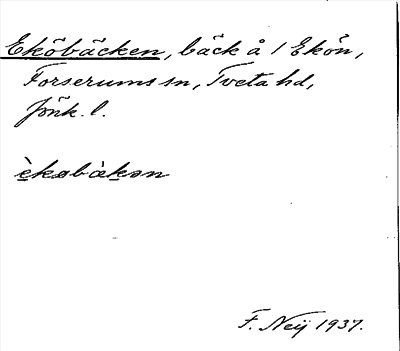 Eköbäcken, bäck å / Ekön,
Forserums sn, Tveta hd,
Jönk. l.
F. Neij 1937.